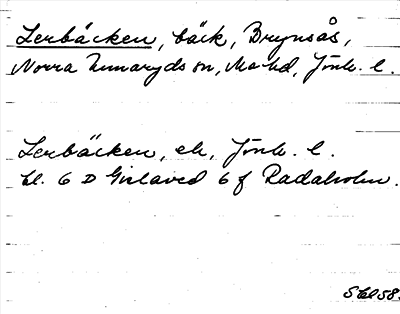 Lerbäcken, bäck, Brynsås,
Norra Unnaryds sn, Mo hd, Jönk. l.
Lerbäcken, ek, Jönk. l.
bl. 6 D Gislaved 6 f Radaholm.